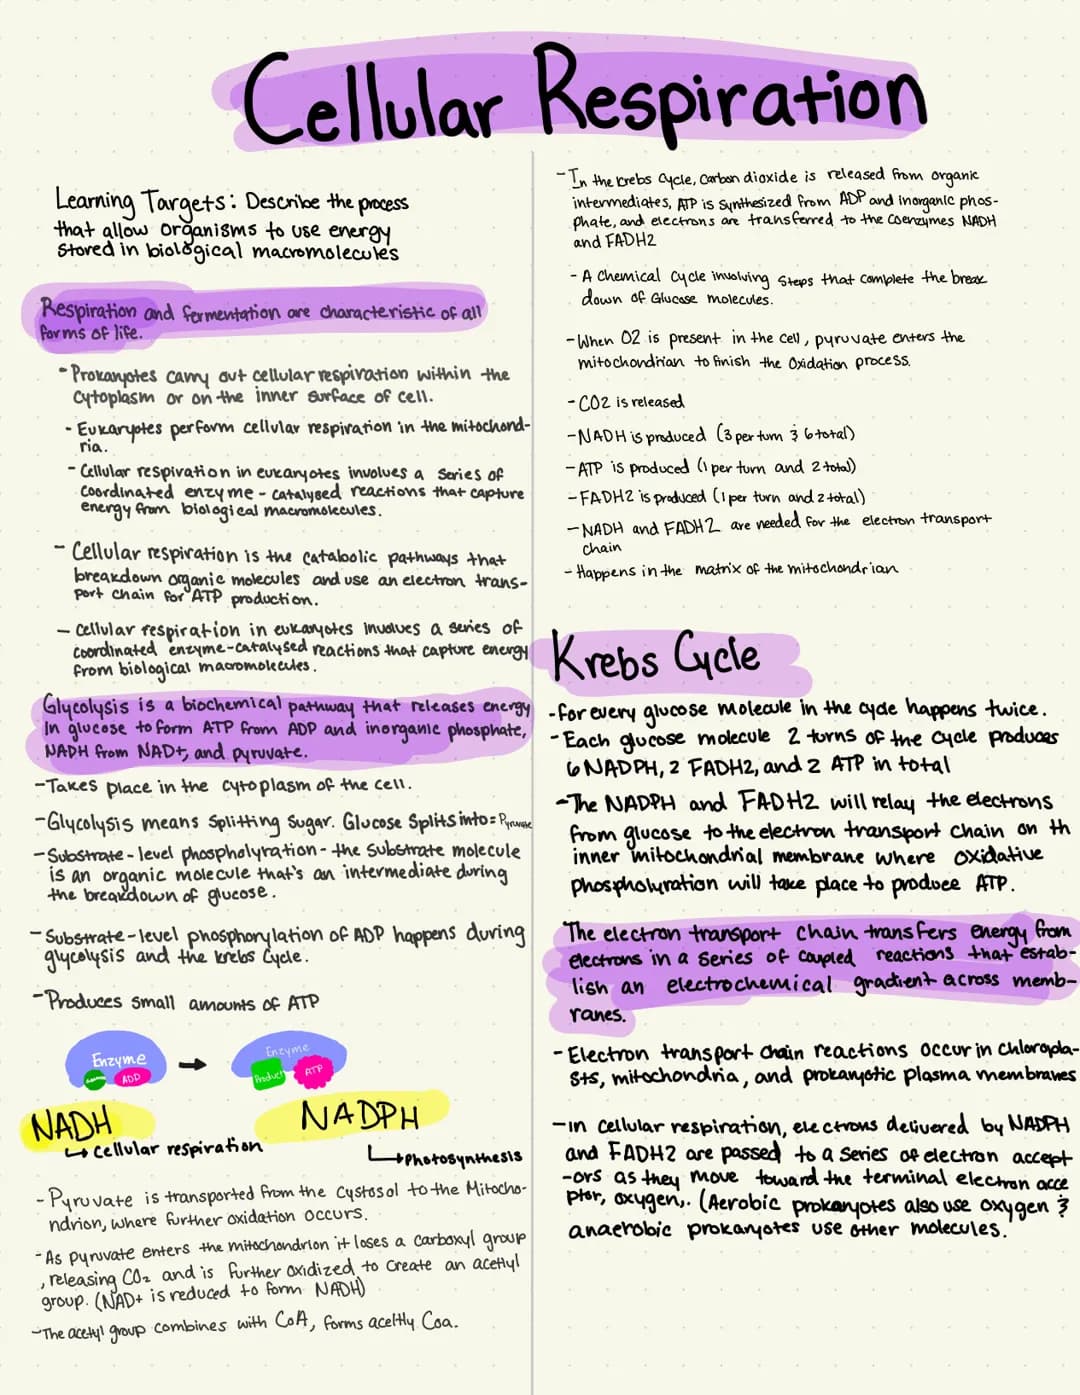 Cellular Respiration
Learning Targets: Describe the process
that allow organisms to use energy
stored in biological macromolecules
Respiration and fermentation are characteristic of all
forms of life.
- Prokaryotes carry out cellular respiration within the
cytoplasm or on the inner surface of cell.
- Eukaryotes perform cellular respiration in the mitochond-
ria.
- Cellular respiration in eukaryotes involves a series of
coordinated enzyme-catalysed reactions that capture
energy from biological macromolecules.
- Cellular respiration is the catabolic pathways that
breakdown organic molecules and use an electron trans-
port chain for ATP production.
- Cellular respiration in eukaryotes involves a series of
coordinated enzyme-catalysed reactions that capture energy
from biological macromolecules.
Glycolysis is a biochemical pathway that releases energy
In glucose to form ATP from ADP and inorganic phosphate,
NADH from NAD+, and pyruvate.
- Takes place in the cytoplasm of the cell.
- Glycolysis means splitting sugar. Glucose Splits into = Pyruvate
- Substrate-level phospholyration - the substrate molecule
is an organic molecule that's an intermediate during
the breakdown of glucose.
- Substrate-level phosphorylation of ADP happens during
glycolysis and the krebs Cycle.
- Produces small amounts of ATP
Enzyme
ADD
Enzyme
Product
ATP
NADH
↳ Cellular respiration
NADPH
↳ Photosynthesis
- Pyruvate is transported from the Cystosol to the Mitocho-
ndrion, where further oxidation occurs.
- As pyruvate enters the mitochondrion it loses a carboxyl group
, releasing CO2 and is further oxidized to create an acetlyl
group. (NAD+ is reduced to form NADH)
- The acetyl group combines with CoA, forms aceltly Coa.
- In the krebs Cycle, Carbon dioxide is released from organic
intermediates, ATP is synthesized from ADP and inorganic phos-
phate, and electrons are transferred to the coenzymes NADH
and FADH2
- A Chemical Cycle involving steps that complete the break
down of Glucose molecules.
- When O2 is present in the cell, pyruvate enters the
mitochondrian to finish the Oxidation process.
- CO2 is released
- NADH is produced (3 per turn & 6 total)
- ATP is produced (1 per turn and 2 total)
- FADH2 is produced (1 per turn and 2 total)
- NADH and FADH2 are needed for the electron transport
chain
- Happens in the matrix of the mitochondrian
Krebs Cycle
- for every glucose molecule in the cycle happens twice.
- Each glucose molecule 2 turns of the cycle produces
6 NADPH, 2 FADH2, and 2 ATP in total
- The NADPH and FADH2 will relay the electrons
from glucose to the electron transport chain on th
inner mitochondrial membrane where oxidative
phospholyration will take place to produce ATP.
The electron transport chain transfers energy from
electrons in a series of coupled reactions that estab-
lish an electrochemical gradient across memb-
ranes.
- Electron transport chain reactions occur in chloropla-
sts, mitochondria, and prokaryotic plasma membranes
- in cellular respiration, electrons delivered by NADPH
and FADH2 are passed to a series of electron accept
-ors as they move toward the terminal electron acce
ptor, oxygen,. (Aerobic prokaryotes also use oxygen &
anaerobic prokaryotes use other molecules.